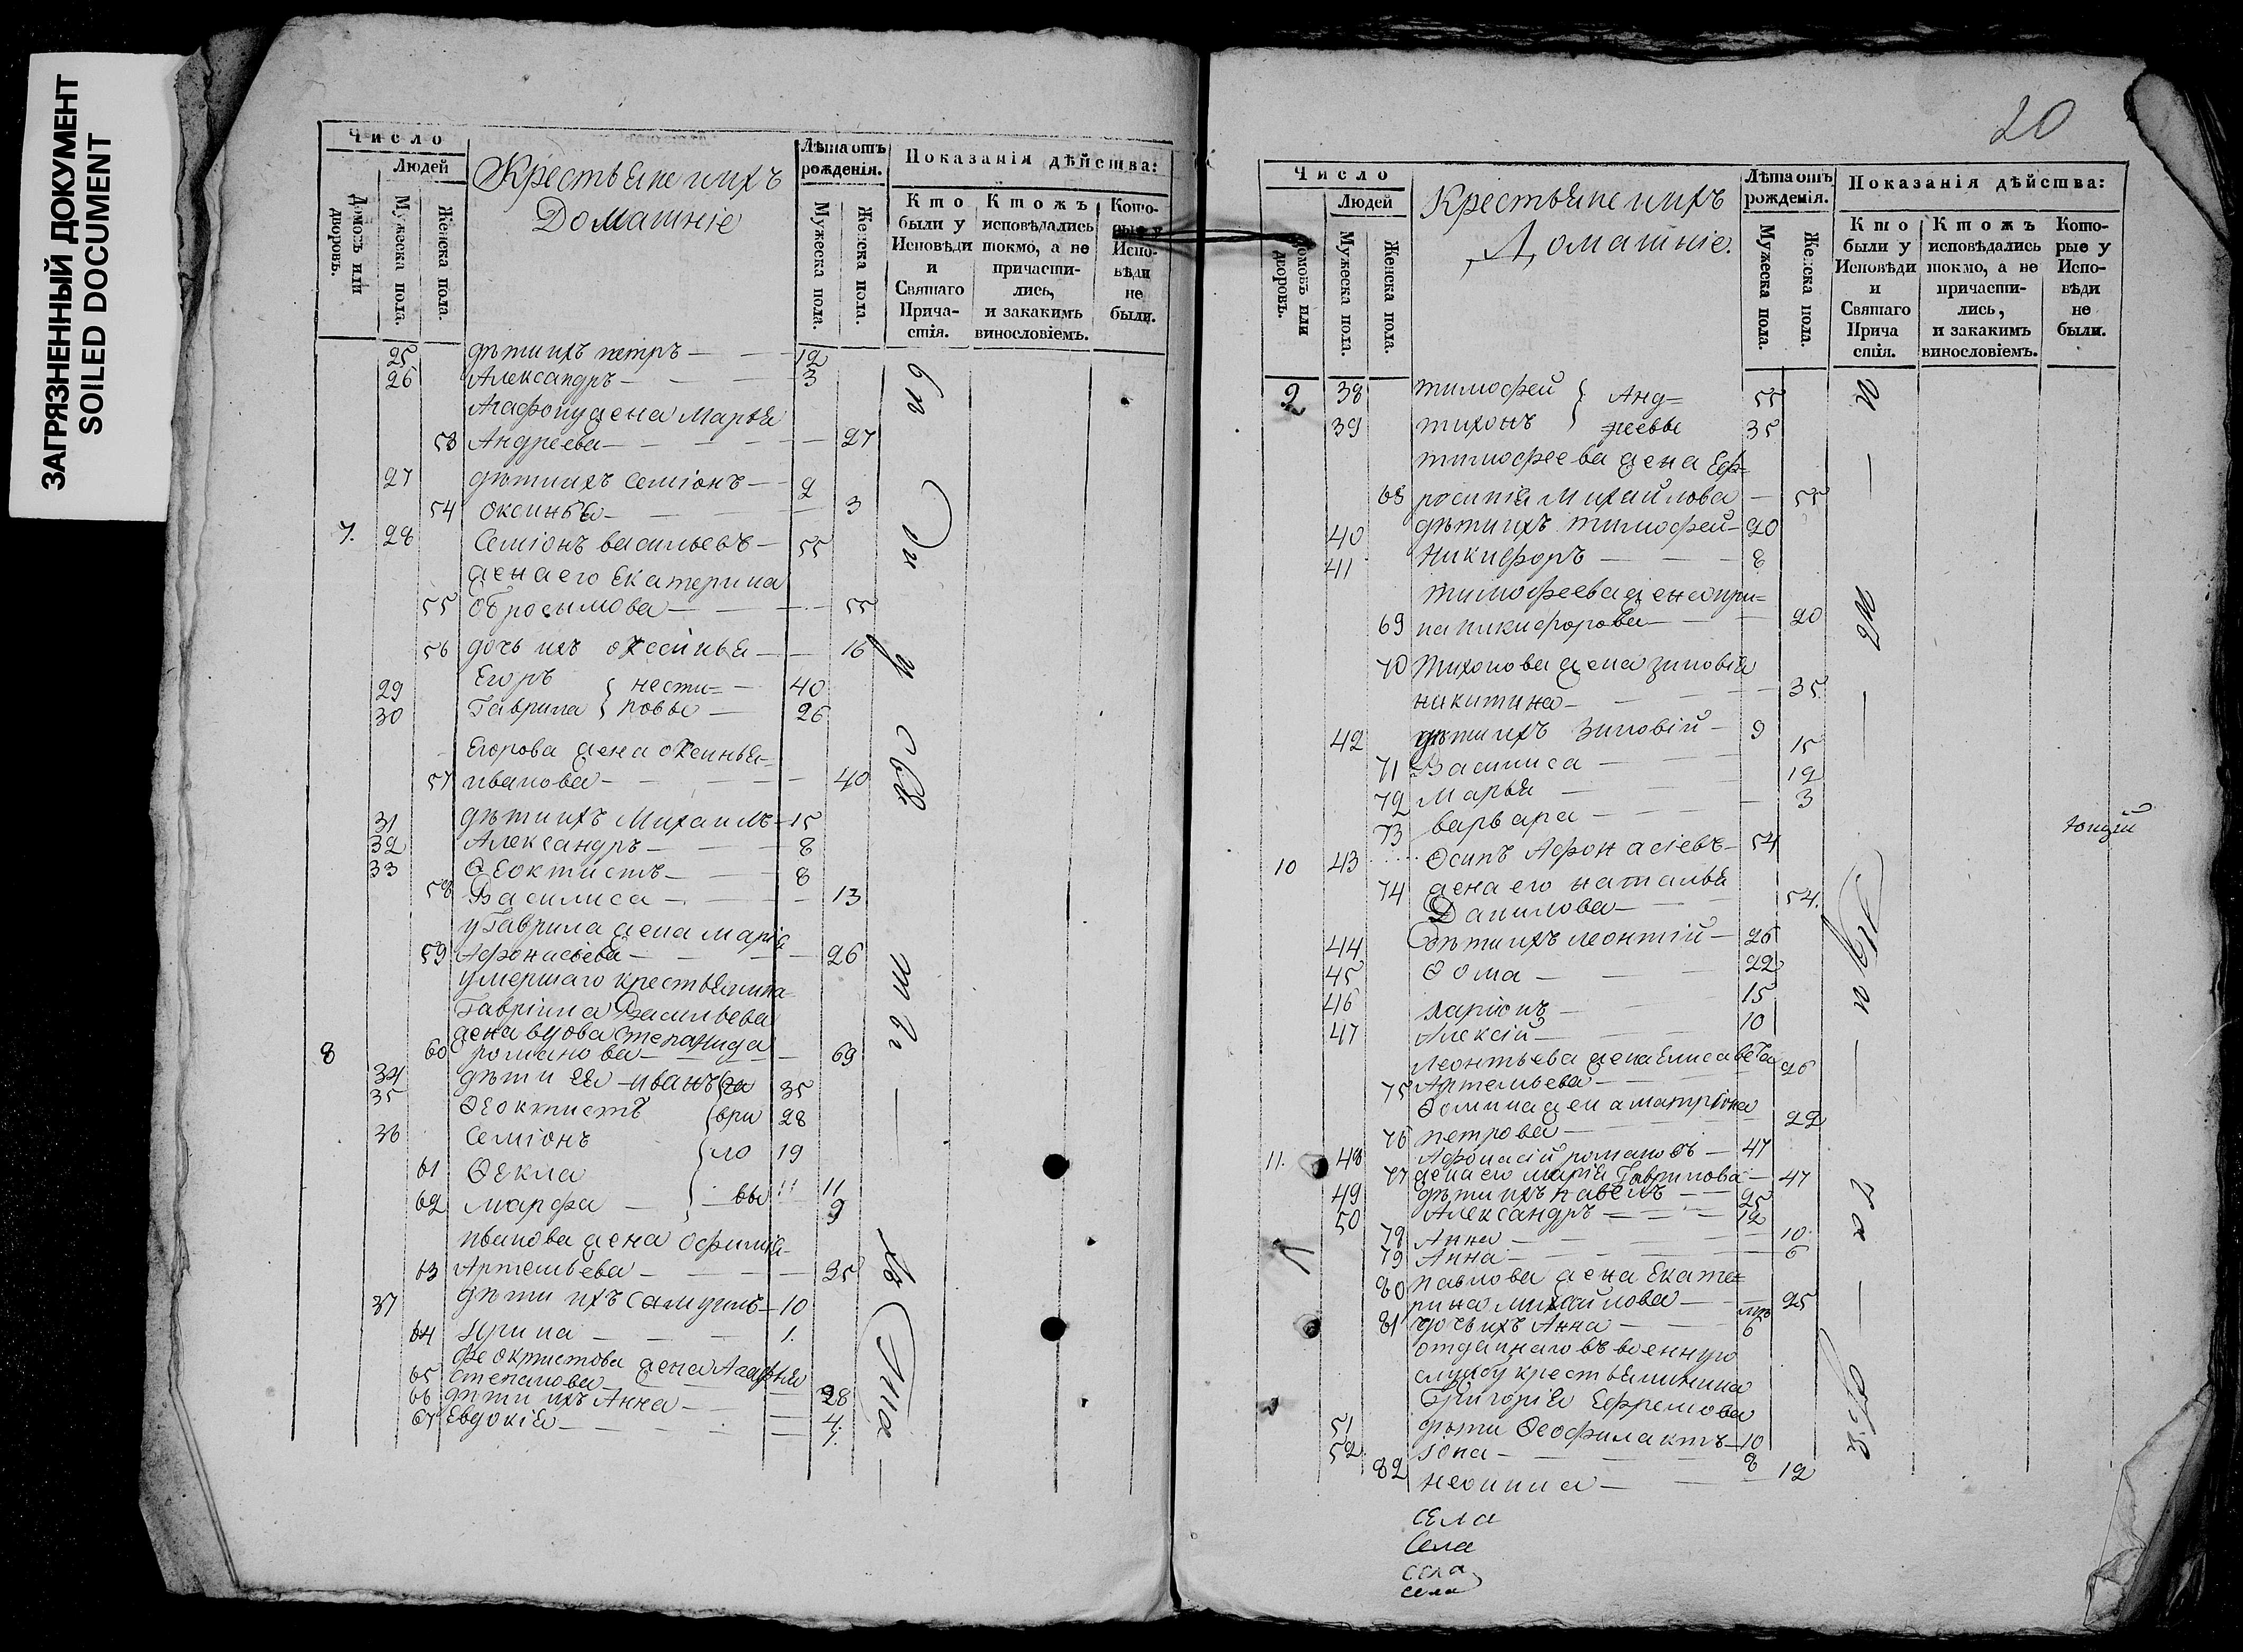 ЗАГРЯЗНЕННЫЙ ДОКУМЕНТ
SOILED DOCUMENT
Число
Людей
Домовъ или дворовъ.
Мужеска пола.
Женска пола.
Крестьяне и ихъ
Домашніе
Лѣта отъ рожденія.
Мужеска пола.
Женска пола.
Показанія дѣйства:
Кто были у Исповѣди и Святаго Прича-стія.
Ктожъ исповѣдались токмо, а не причасти-лись, и закакимъ винословіемъ.
Кото-рые у Испо-вѣди не были.
25 дѣти ихъ петръ — 12
26 Александръ — 3
Агафону жена Марья
53 Андреева — 27
27 дѣти ихъ Семіонъ — 2
54 оксинья — 3
7. 28 Семіонъ васильевъ — 55
жена его Екатерина
55 обросимова — 55
56 дочь ихъ оксинья — 16
29 Егоръ { нести= — 40
30 Гаврила } ровы — 26
Егорова жена оксинья
57 иванова — 40
31 дѣти ихъ Михаилъ — 15
32 Александръ — 8
33 Ѳеоктистъ — 8
58 Василиса — 13
у Гаврила жена марія
59 Афонасьева — 26
умершаго крестьянина
Гавріила Васильева
жена вдова степанида
8 60 романова — 69
34 дѣти ея иванъ { га 35
35 Ѳеоктистъ { ври 28
36 Семіонъ { ло 19
61 Ѳекла 11
62 марфа — } вы 9
иванова жена Офимія
63 Артемьева — 35
37 дѣти ихъ самуилъ — 10
64 Ирина — 1.
феоктистова жена Агафья
65 степанова — 28
66 дѣти ихъ Анна — 4.
67 Евдокія — 1.
20
Число
Людей
Домовъ или дворовъ.
Мужеска пола.
Женска пола.
Крестьяне и ихъ
Домашніе.
Лѣта отъ рожденія.
Мужеска пола.
Женска пола.
Показанія дѣйства:
Кто были у Исповѣди и Святаго Прича стія.
Ктожъ исповѣдались токмо, а не причасти-лись, и закакимъ винословіемъ.
Кото-рые у Испо-вѣди не были.
9 38 тимофей } Анд= 55
39 тихонъ } реевы 35
тимофеева жена Еф=
68 росинія Михайлова — 55
40 дѣти ихъ тимофей — 20
41 Никифоръ — 8
тимофеева жена ири=
69 на никифорова — 20
70 Тихонова жена зиновія
никитина — 35
42 дѣти ихъ Зиновій — 9
71 Василиса — 15
72 Марья — 12
73 варвара — 3
10 43 Осипъ Афонасіевъ — 54
74 жена его наталья
Данилова — 54.
44 дѣти ихъ леонтій — 26
45 Ѳома — 22
46 Ларіонъ — 15
47 Алексій — 10
леонтьева жена Елисавета
75 Артемьева — 26
Ѳомина жена матрiона
76 петрова — 22
11. 48 Афонасій романовъ — 47
77 жена его марія Гаврилова — 47
49 дѣти ихъ павелъ — 25
50 Александръ — 12
78 Анна — 10.
79 Анна — 6
80 павлова жена Екате=
рина михайлова — 25
81 дочь ихъ Анна — 6
отданнаго въ военную
службу крестьянинина
Григорія Ефремова
51 дѣти Ѳеофилактъ — 10
52 Іона — 8
82 неонила — 12
села
Села
села
села